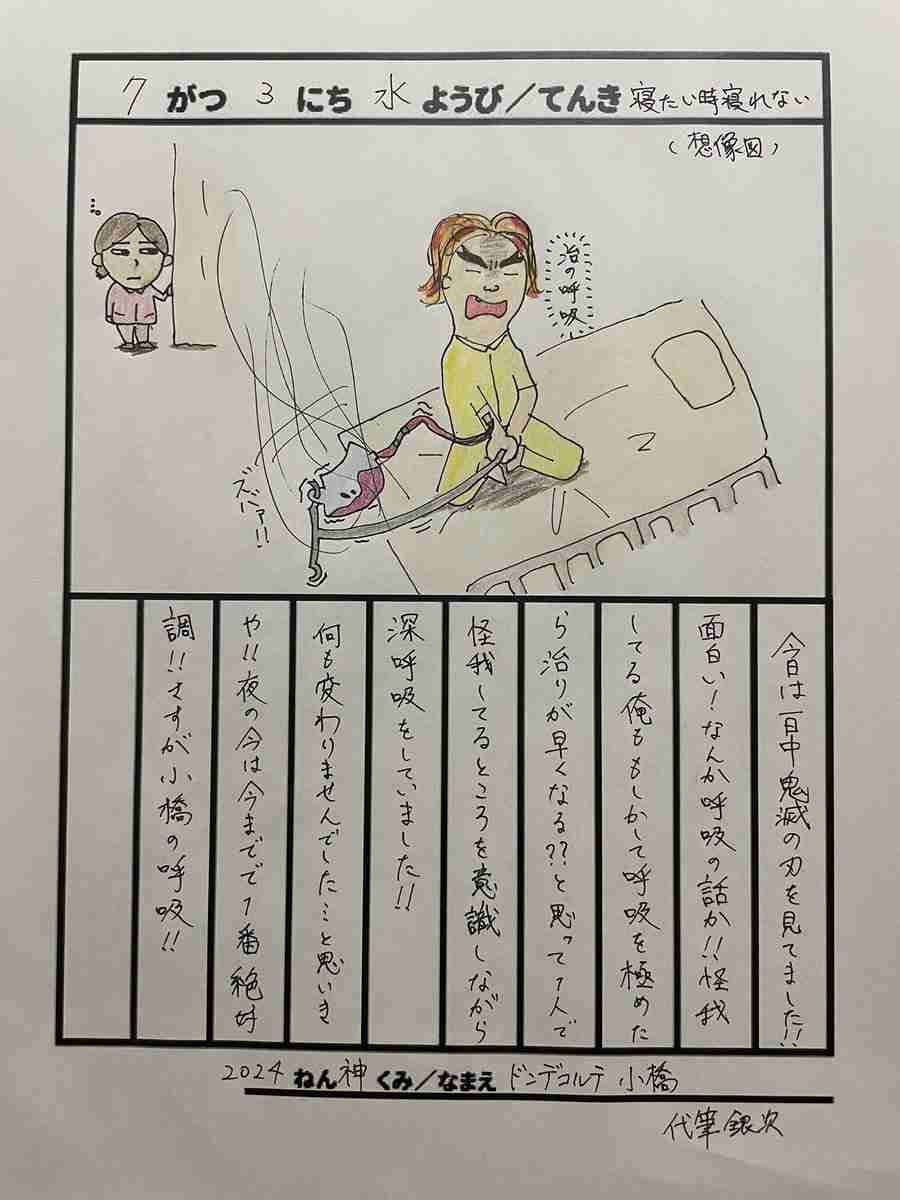 7 がつ 3 にち 水 ようび／てんき 寝たい時寝れない
（想像図）
治の呼吸
ズバァ!!
今日は一日中鬼滅の刃を見てました!!
面白い！なんか呼吸の話か!!怪我
してる俺ももしかして呼吸を極めた
ら治りが早くなる??と思って1人で
怪我してるところを意識しながら
深呼吸をしていました!!
何も変わりませんでした…と思いき
や!!夜の今は今までで1番絶好
調!!さすが小橋の呼吸!!
2024 ねん 神 くみ／なまえ ドンデコルテ 小橋
代筆銀次